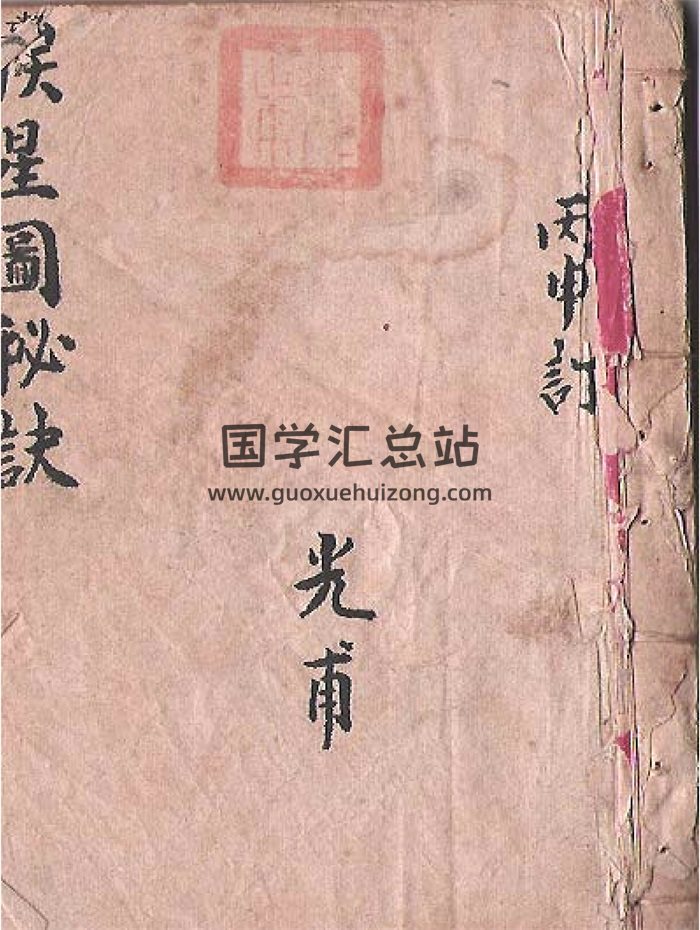 丙申訂
国学汇总站
www.guoxuehuizong.com
光甫
星圖祕訣